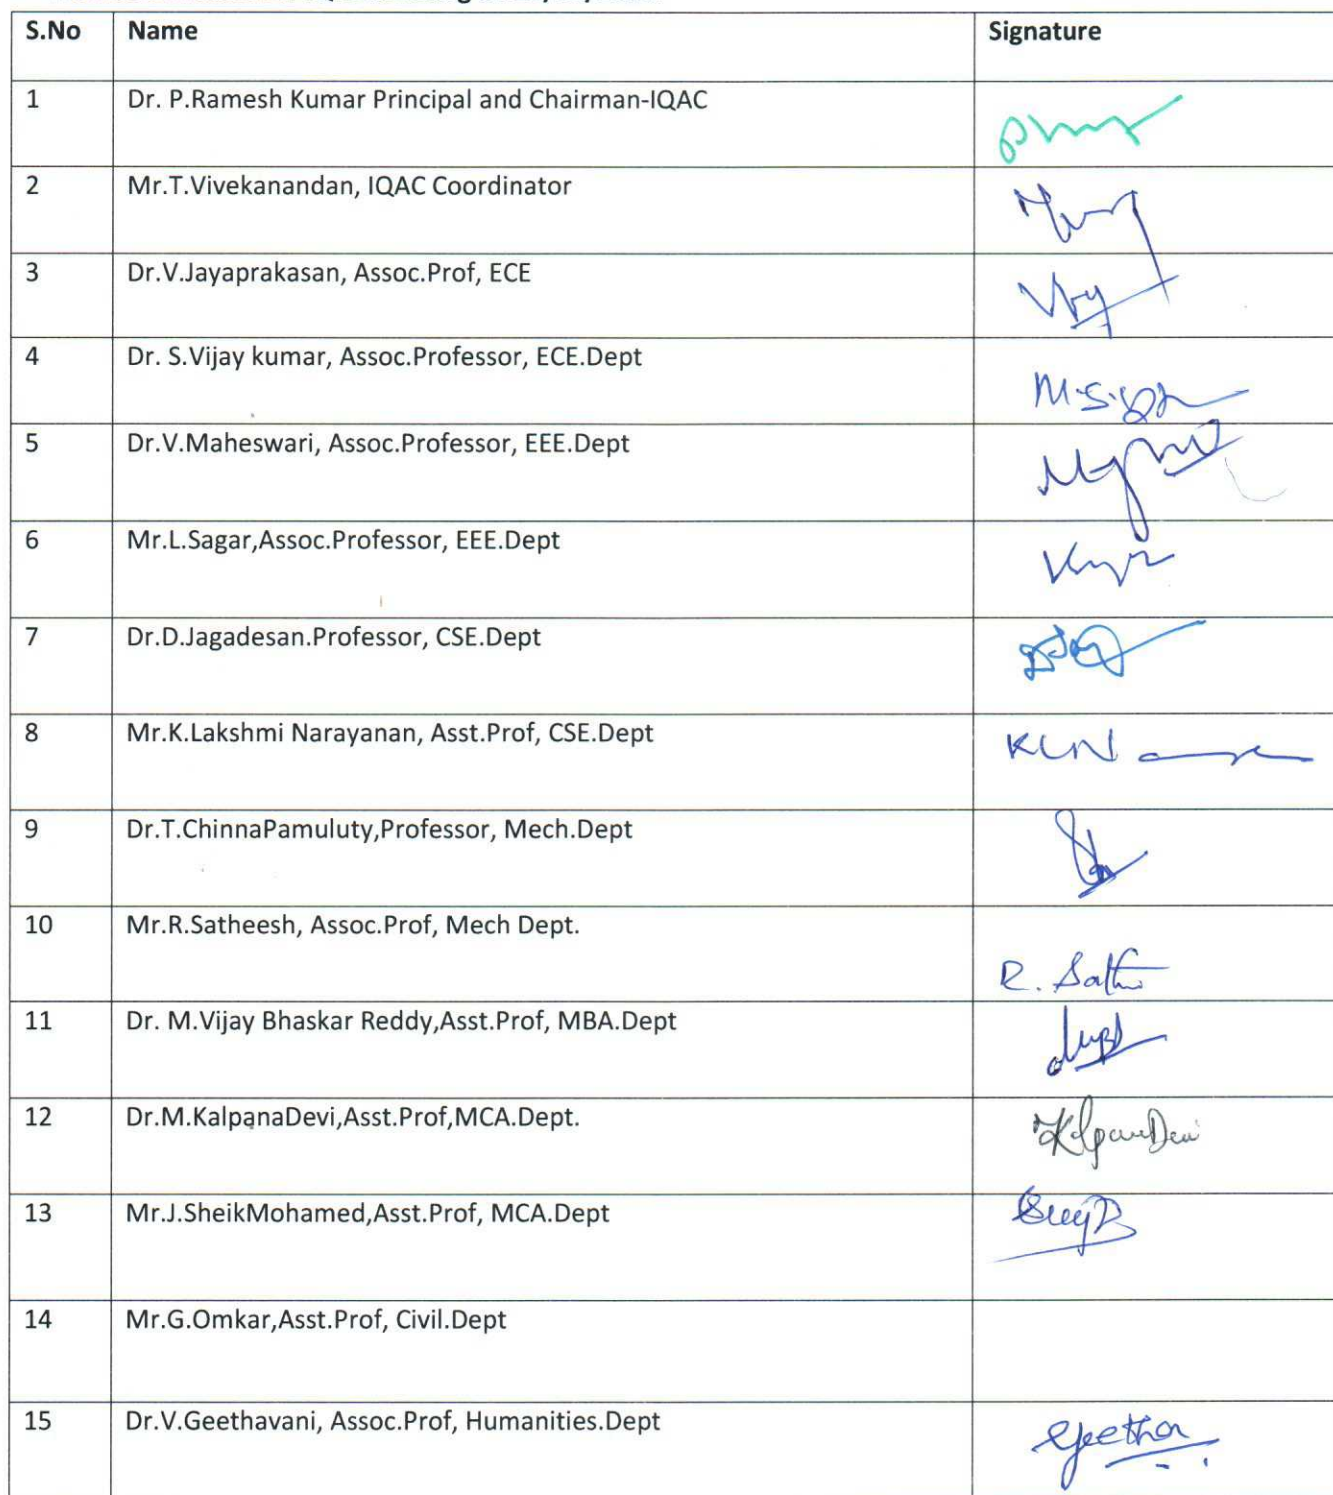 S.No Name Signature
1 Dr. P.Ramesh Kumar Principal and Chairman-IQAC
2 Mr.T.Vivekanandan, IQAC Coordinator
3 Dr.V.Jayaprakasan, Assoc.Prof, ECE
4 Dr. S.Vijay kumar, Assoc.Professor, ECE.Dept
5 Dr.V.Maheswari, Assoc.Professor, EEE.Dept
6 Mr.L.Sagar,Assoc.Professor, EEE.Dept
7 Dr.D.Jagadesan.Professor, CSE.Dept
8 Mr.K.Lakshmi Narayanan, Asst.Prof, CSE.Dept KLN
9 Dr.T.ChinnaPamuluty,Professor, Mech.Dept
10 Mr.R.Satheesh, Assoc.Prof, Mech Dept.
R.
11 Dr. M.Vijay Bhaskar Reddy,Asst.Prof, MBA.Dept
12 Dr.M.KalpanaDevi,Asst.Prof,MCA.Dept.
13 Mr.J.SheikMohamed,Asst.Prof, MCA.Dept
14 Mr.G.Omkar,Asst.Prof, Civil.Dept
15 Dr.V.Geethavani, Assoc.Prof, Humanities.Dept
Geetha